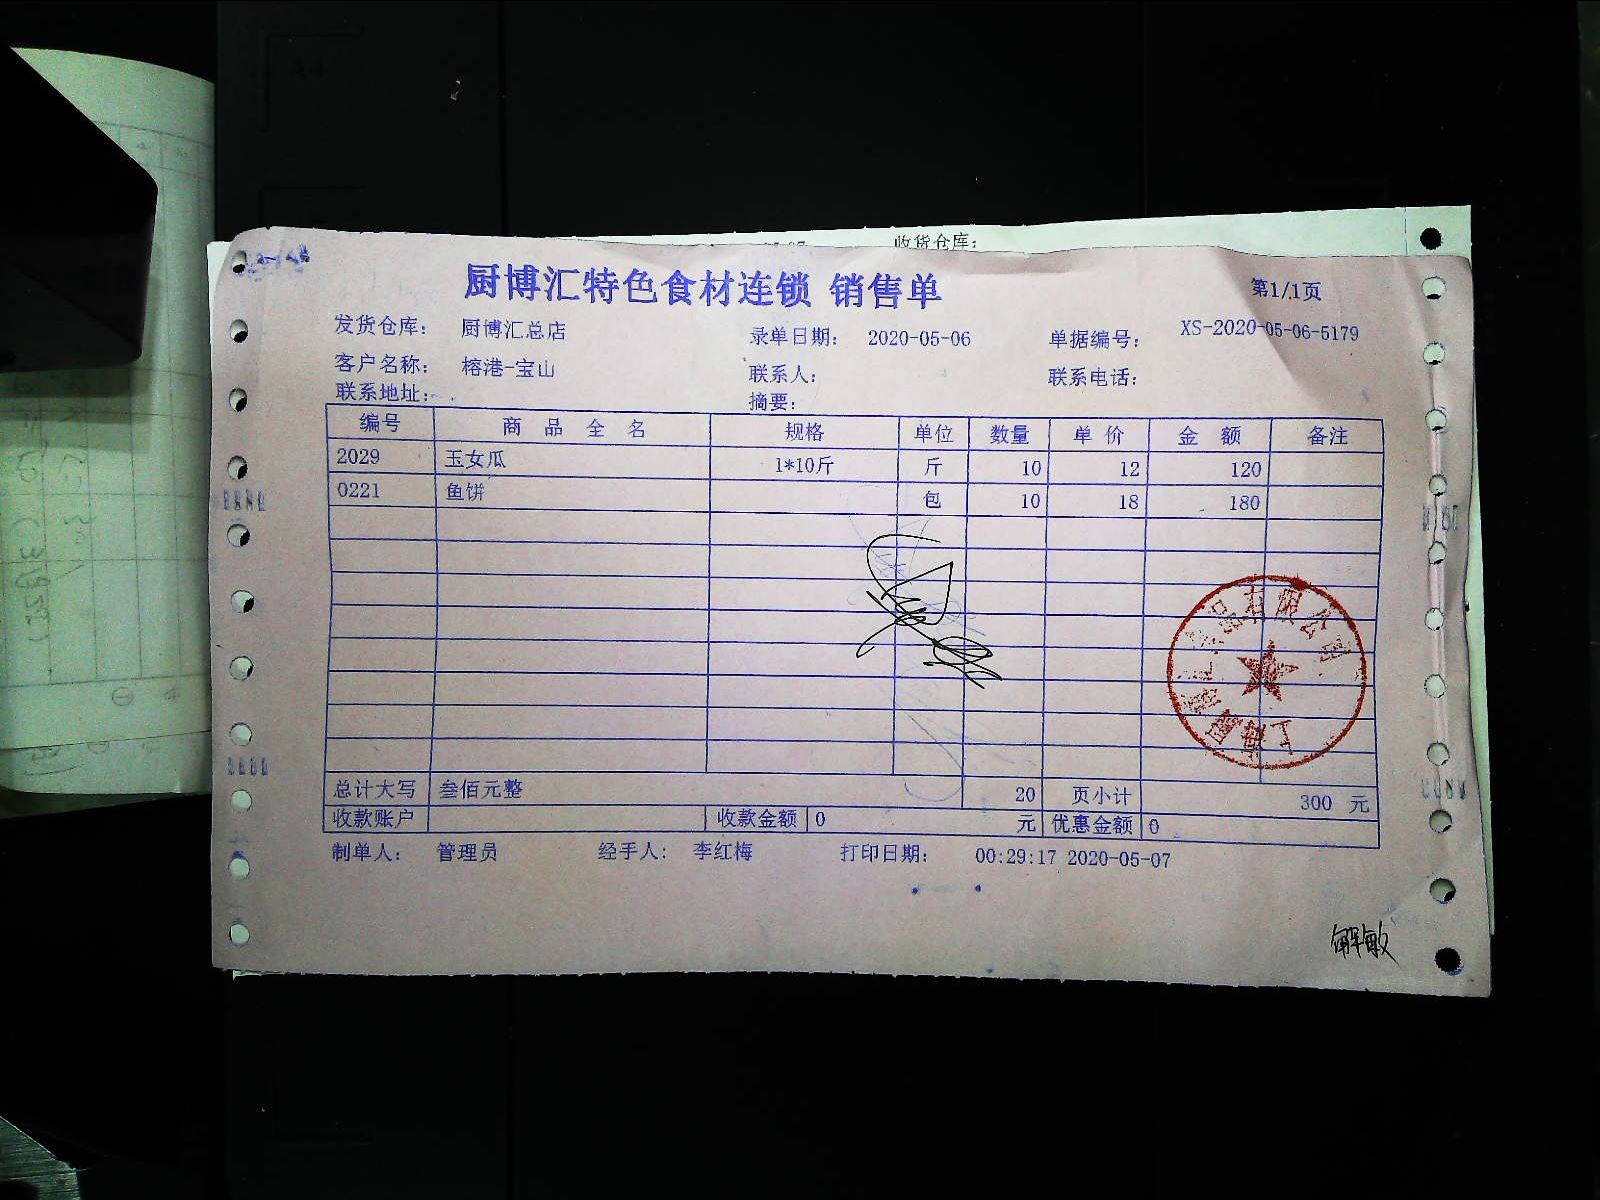 收货仓库:
厨博汇特色食材连锁 销售单
第1/1页
发货仓库: 厨博汇总店 录单日期: 2020-05-06 单据编号: XS-2020-05-06-5179
客户名称: 榕港-宝山 联系人: 联系电话:
联系地址: 摘要:
编号 商品全名 规格 单位 数量 单价 金额 备注
2029 玉女瓜 1*10斤 斤 10 12 120
0221 鱼饼 包 10 18 180
品有限公司
上海厨
总计大写 叁佰元整 20 页小计 300 元
收款账户 收款金额 0 元 优惠金额 0
制单人: 管理员 经手人: 李红梅 打印日期: 00:29:17 2020-05-07
解敏